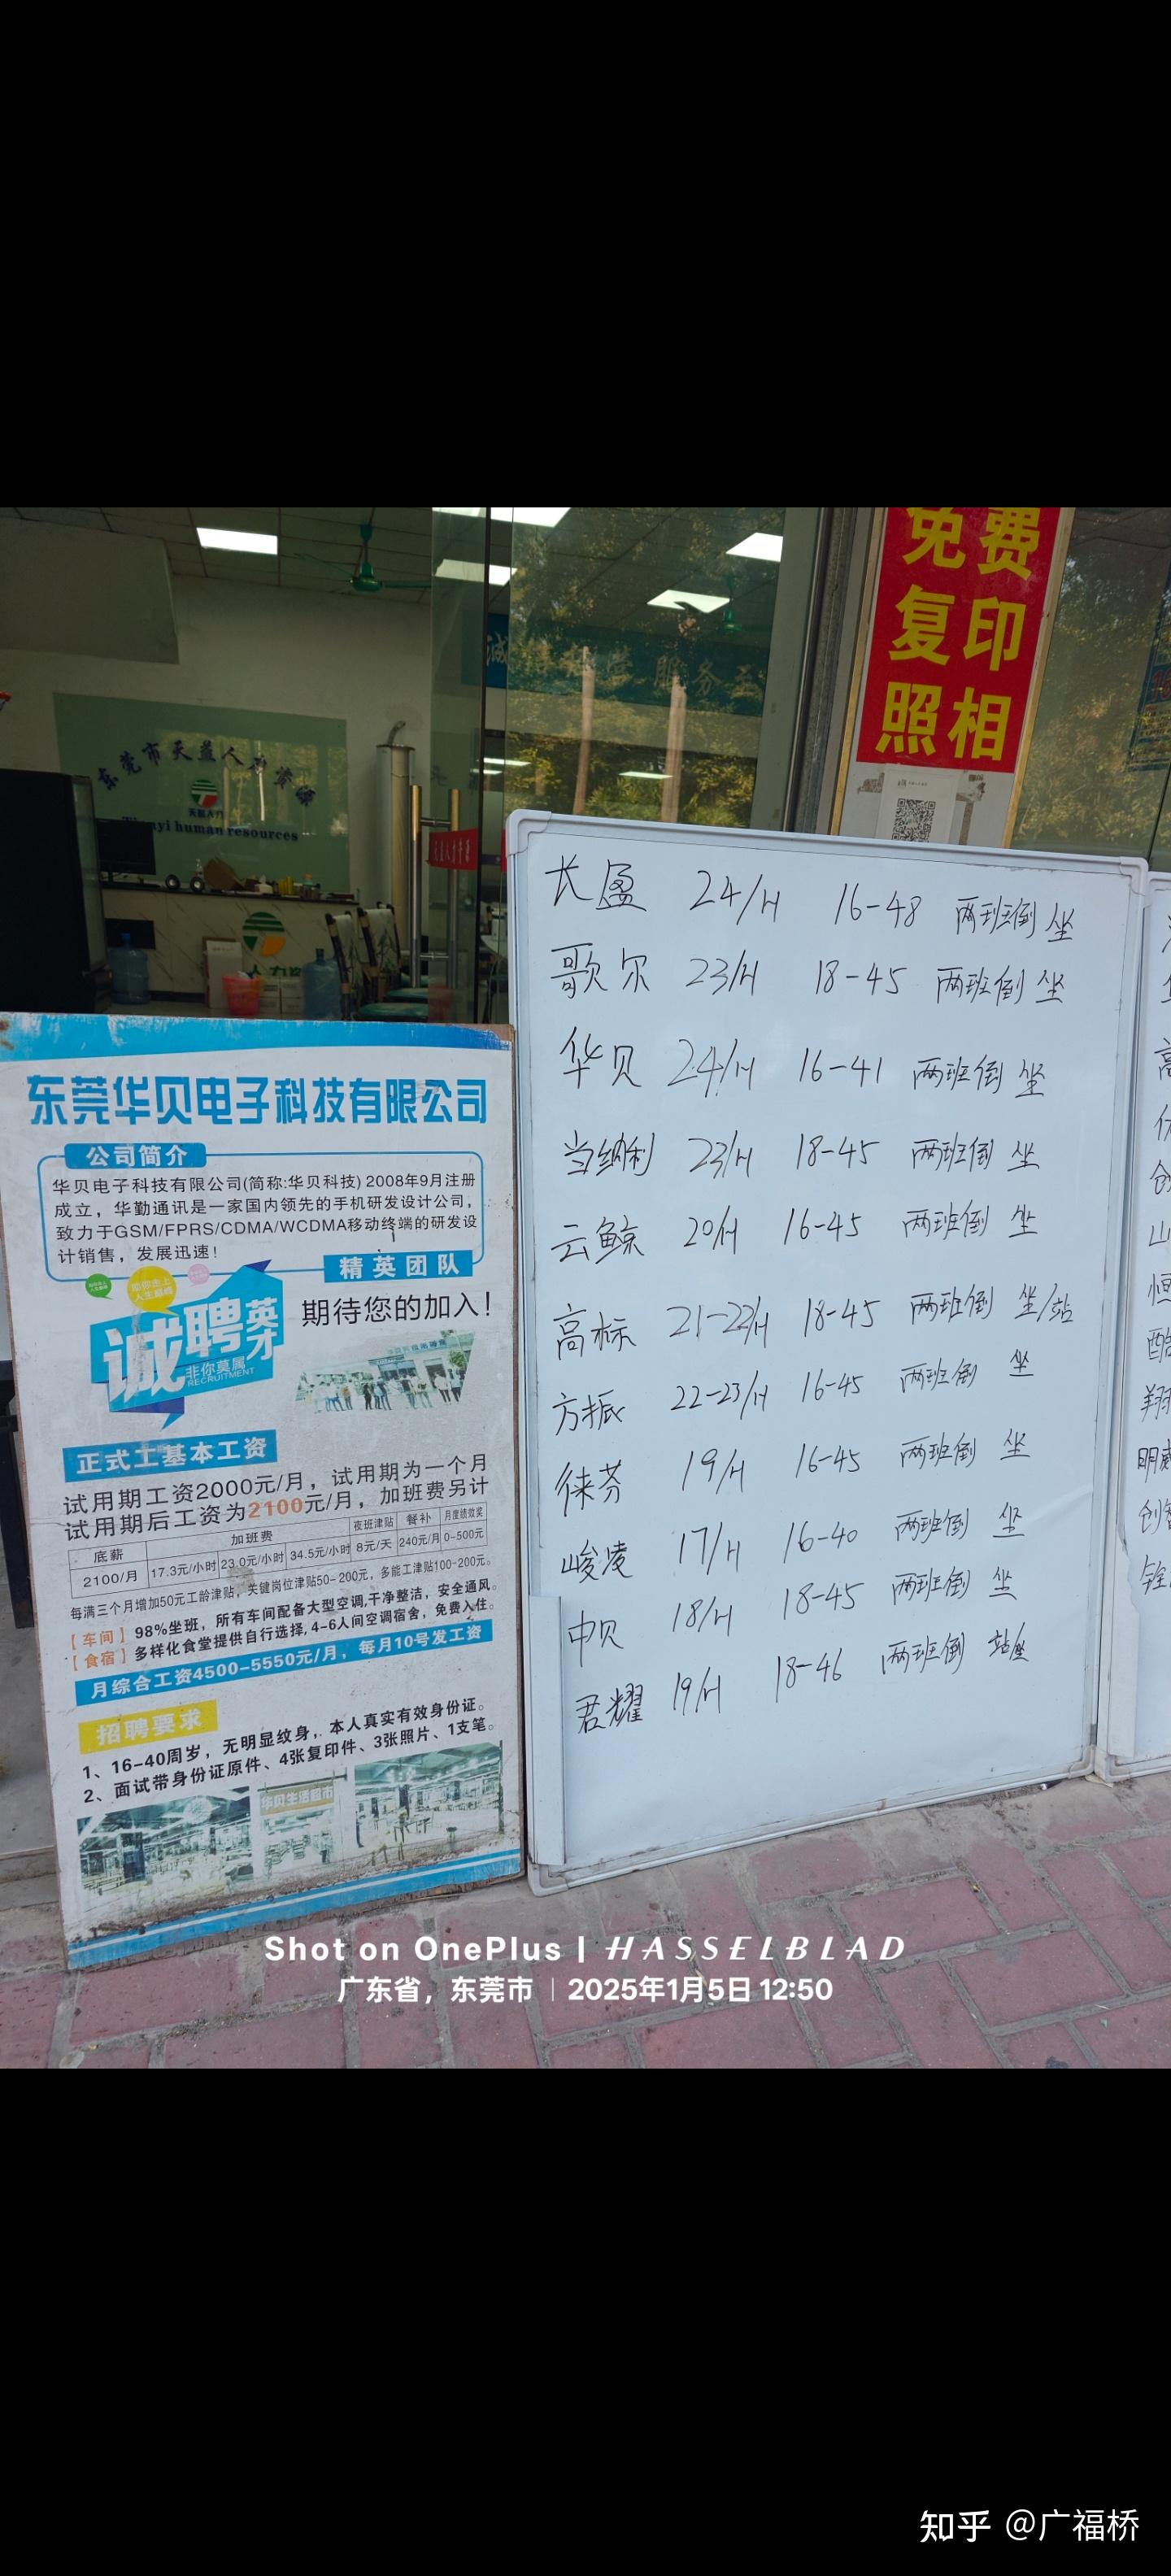 免费
复印
照相
东莞市天益人力资源
Tianyi human resources
长盈 24/H 16-48 两班倒 坐
歌尔 23/H 18-45 两班倒 坐
华贝 24/H 16-41 两班倒 坐
当纳利 23/H 18-45 两班倒 坐
云鲸 20/H 16-45 两班倒 坐
高标 21-22/H 18-45 两班倒 坐/站
方振 22-23/H 16-45 两班倒 坐
徕芬 19/H 16-45 两班倒 坐
峻凌 17/H 16-40 两班倒 坐
中贝 18/H 18-45 两班倒 坐
君耀 19/H 18-46 两班倒 站坐
东莞华贝电子科技有限公司
公司简介
华贝电子科技有限公司(简称:华贝科技) 2008年9月注册
成立，华勤通讯是一家国内领先的手机研发设计公司，
致力于GSM/FPRS/CDMA/WCDMA移动终端的研发设
计销售，发展迅速！
精英团队
期待您的加入！
诚聘英才
非你莫属
RECRUITMENT
正式工基本工资
试用期工资2000元/月，试用期为一个月
试用期后工资为2100元/月，加班费另计
底薪 加班费 夜班津贴 餐补 月度绩效奖
2100/月 17.3元/小时 23.0元/小时 34.5元/小时 8元/天 240元/月 0-500元
每满三个月增加50元工龄津贴，关键岗位津贴50-200元，多能工津贴100-200元。
【车间】98%坐班，所有车间配备大型空调,干净整洁，安全通风。
【食宿】多样化食堂提供自行选择，4-6人间空调宿舍，免费入住。
月综合工资4500-5550元/月，每月10号发工资
招聘要求
1、16-40周岁，无明显纹身，本人真实有效身份证。
2、面试带身份证原件、4张复印件、3张照片、1支笔。
华贝生活超市
Shot on OnePlus | HASSELBLAD
广东省，东莞市 | 2025年1月5日 12:50
知乎 @广福桥